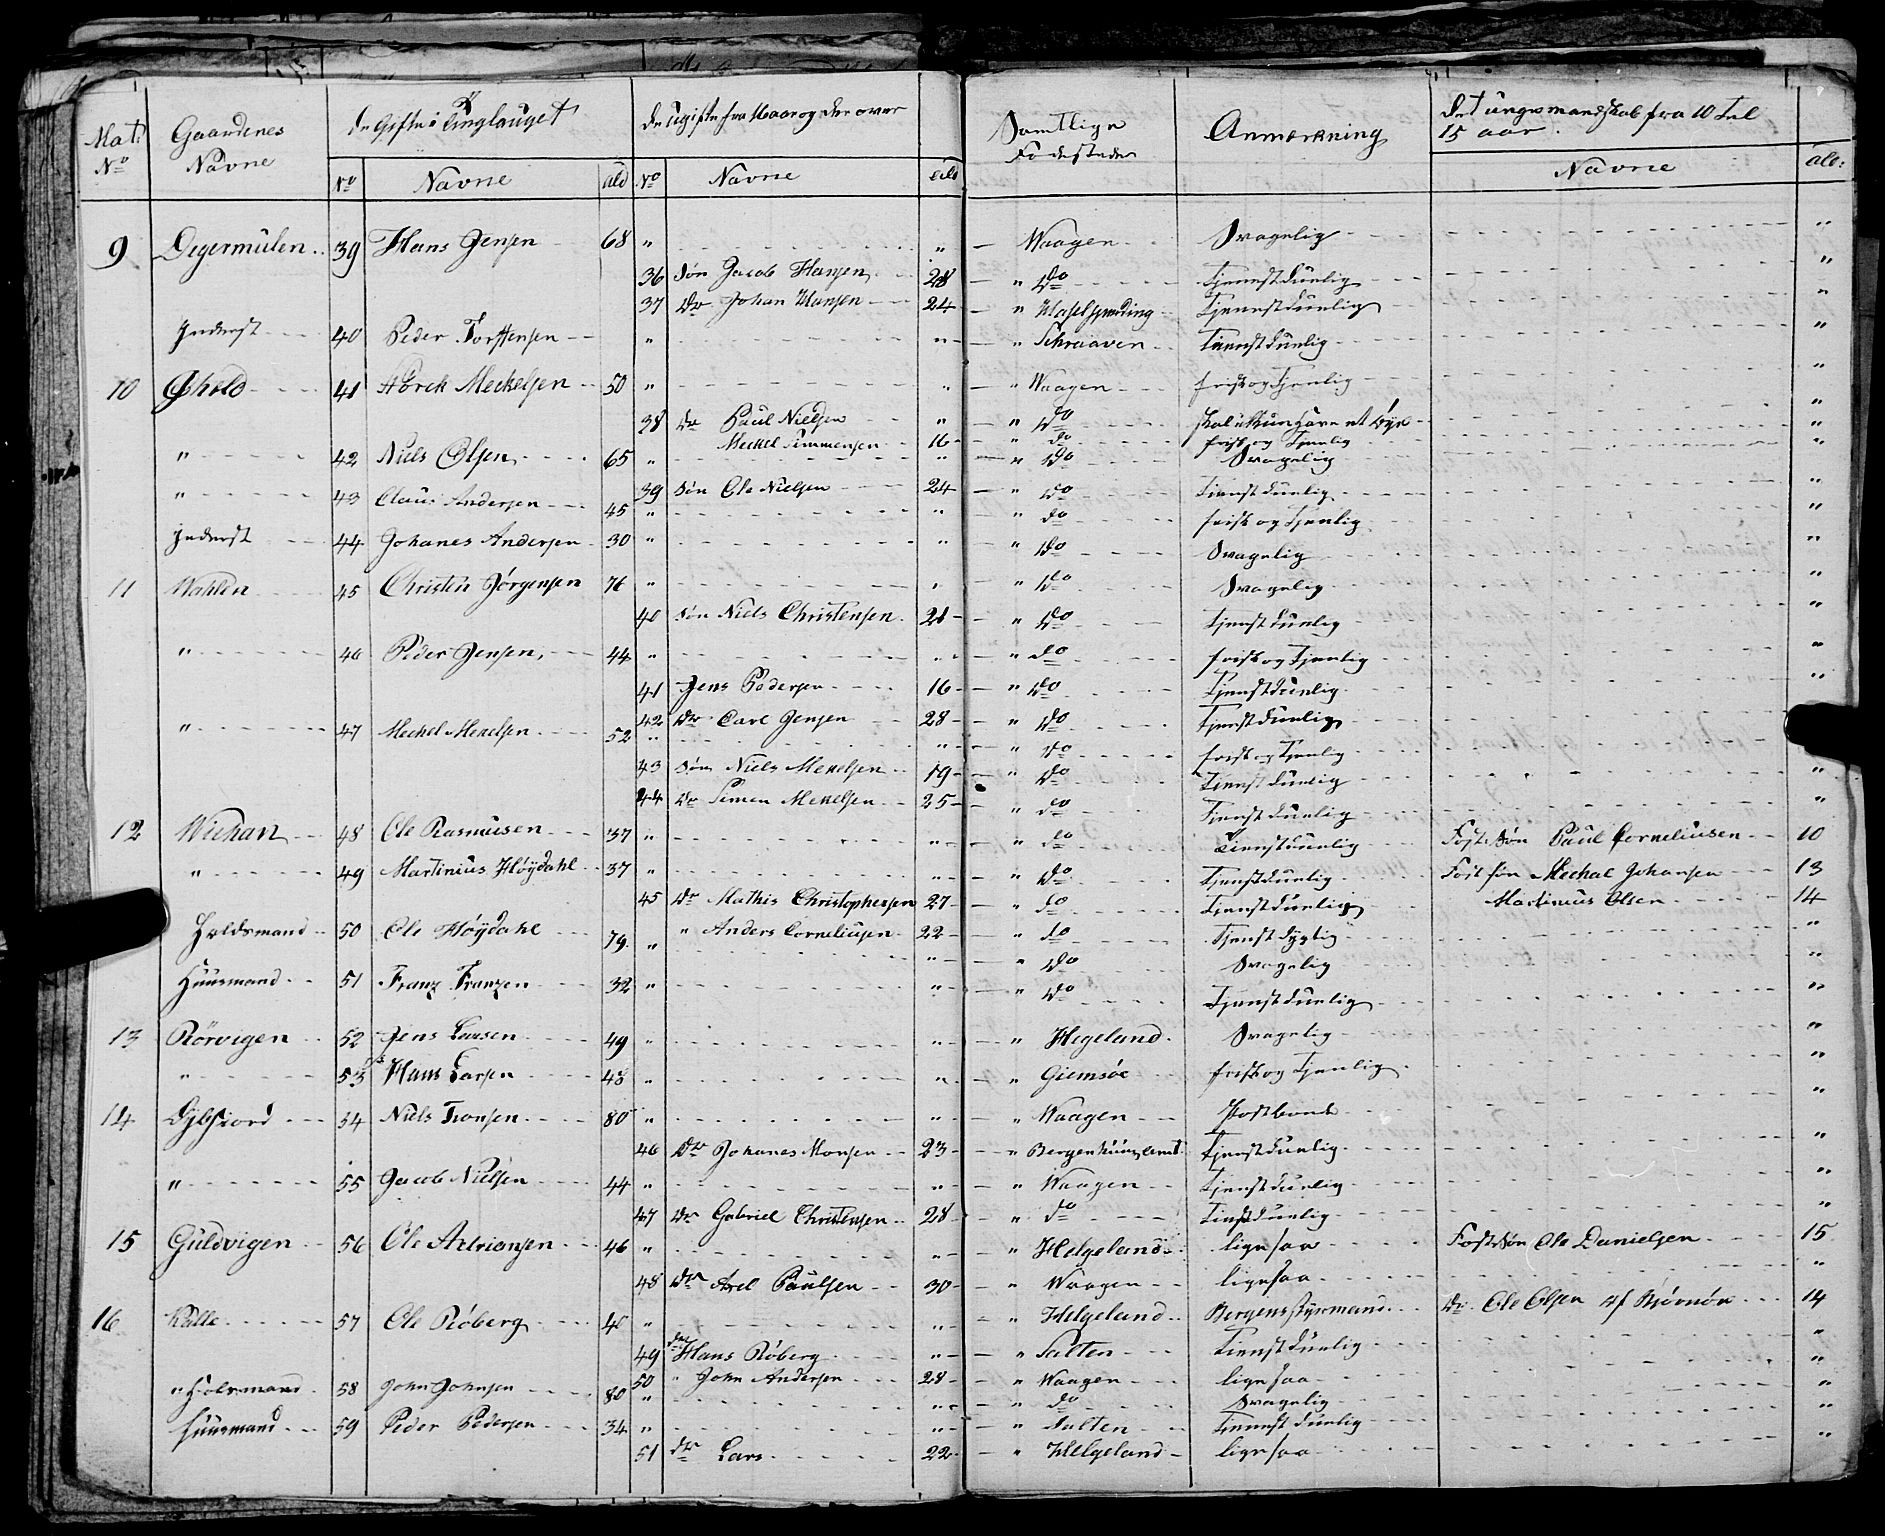 Mat. No | Gaardenes Navne | De Gifte i Tinglauget | De Ugifte fra 16 aar og der over | Samtlige Fødesteder | Anmærkning | Det unge mandskab fra 10 til 15 aar.
No | Navne | ald | No | Navne | ald | Navne | ald:
9 Degermulen 39 Hans Jensen 68 " " Waagen Svagelig "
36 Søn Jacob Hansen 28 " Do Tjenestdunlig "
37 Do Johan Hansen 24 " Tjenestdunlig "
Inderst 40 Peder Torstensen " " " Schraaven Tienestdunlig "
10 Øheld 41 Mechelsen 50 " " " Waagen frisk og Tjenlig "
38 Do Paul Nielsen " " Do "
Mechel Simmensen 16 " do frisk og Tjenlig "
" 42 Niels Olsen 65 " " " Do Svagelig "
39 Søn Ole Nielsen 24 " Do Tienestdunlig "
" 43 Claus Andersen 45 " " " do frisk og Tjenlig "
Inderst 44 Johanes Andersen 30 " " " Do Svagelig "
11 45 Christen Jørgensen 76 " " " Do Svagelig "
40 Søn Niels Christensen 21 " Do Tjenstdunlig "
" 46 Peder Jensen, 44 " " " do frisk og Tjenlig "
41 Jens Pedersen 16 " Do Tjenstdunlig "
42 Do Carl Jensen 28 " Do Tjenstdunlig
" 47 Mechel Mekelsen 52 " " " Do frisk og Tjenlig "
43 Søn Niels Mekelsen 19 " Do Tienestdunlig "
44 Do Simen Mekelsen 25 " do Tienestdunlig "
12 Wichan 48 Ole Rasmusen 37 " " " do Tienestdunlig Fostsøn Paul Corneliusen 10
" 49 Martinius Høydahl 37 " " " Do Tjenstdunlig Fostsøn Mechal Johansen 13
45 Do Mathis Christophersen 27 " do Tjenstdunlig Martinius Olsen 14
50 Ole Høydahl 79 " " Anders Corneliusen 22 " do Tjenstdygtig "
" " Do Svagelig "
Huusmand 51 Franz Franzen 32 " " " Do Tjenstdunlig "
13 Rörvigen 52 Jens Larsen 49 " " " Hegeland Svagelig "
" 53 Hans Larsen 48 " " " Giemsöe frisk og Tjenlig "
14 54 Niels Tronsen 80 " " " Waagen Postbonde "
46 Do Johanes Monsen 23 " Bergenhuusamt Tjenstdunlig "
" 55 Jacob Nielsen 44 " " " Waagen Tjenstdunlig "
47 Do Gabriel Christensen 28 " do Tienstdunlig "
15 Guldvigen 56 Ole Adriansen 46 " " " Helgeland ligesaa Fostsøn Ole Danielsen 15
48 Do Axel Paulsen 30 " Waagen ligesaa "
16 Kalle 57 Ole Røberg " " " Helgeland Bergens styrmand Do Ole Olsen af 14
49 do Hans Røberg " " Salten Tienestdunlig "
50 " John Andersen 28 " Waagen ligesaa "
" 58 John Johnsen 80 " " " do Svagelig "
Huusmand 59 Peder Pedersen 34 " " " Salten Tienestdunlig "
51 do Lars 22 " Helgeland ligesaa "